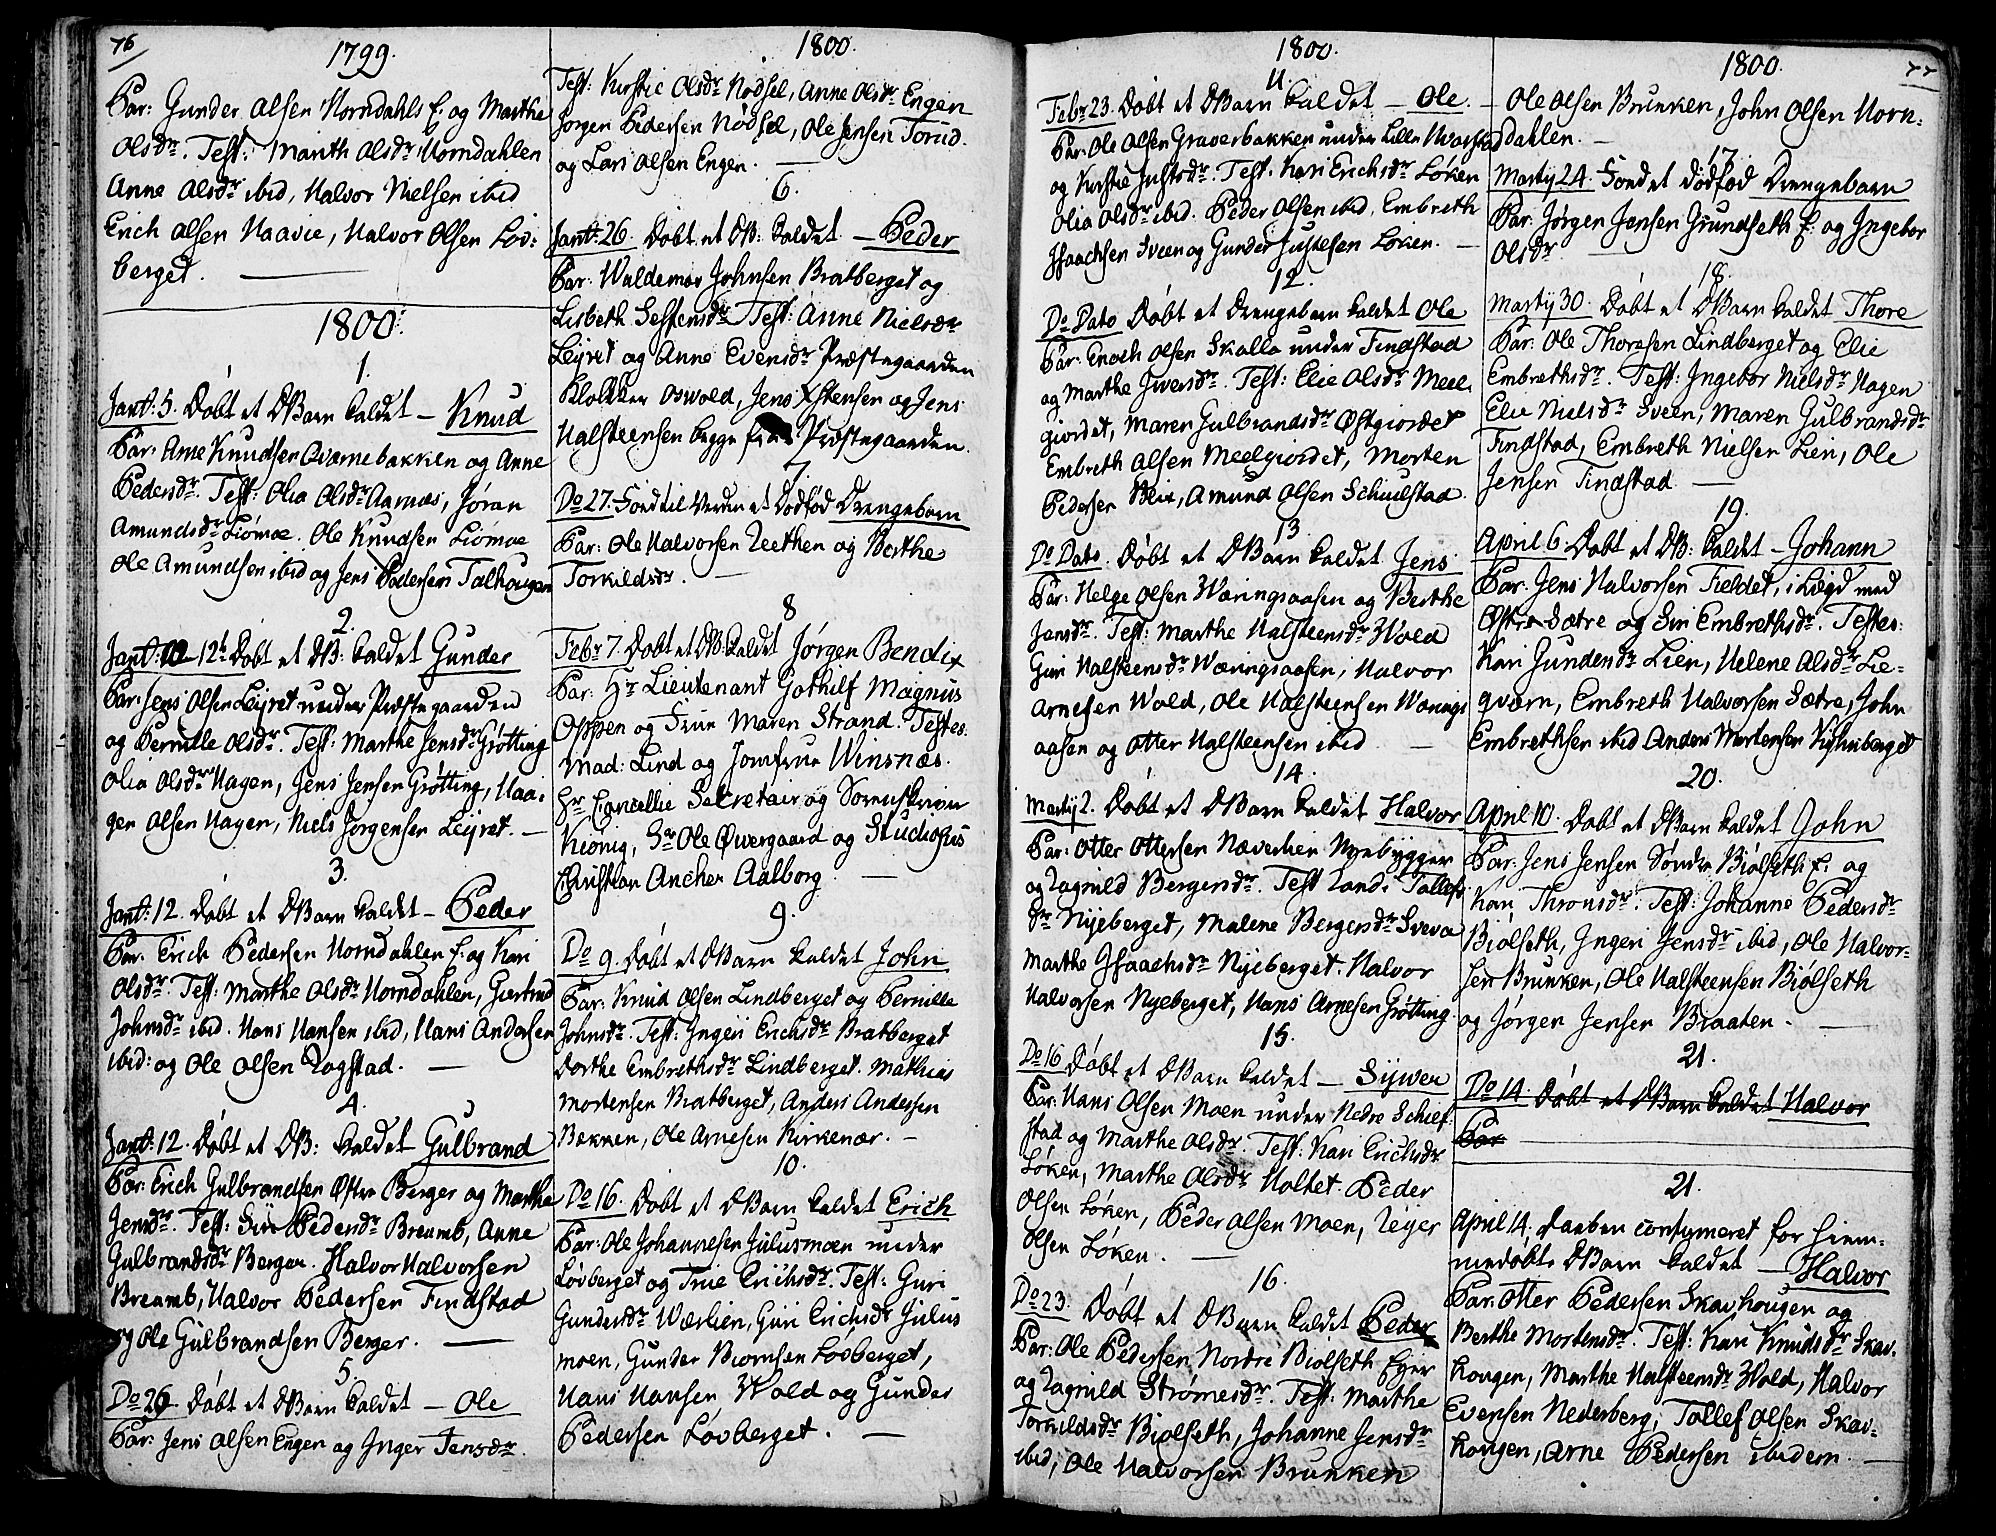 76
1799.
Par: Gunder Olsen Horndahls E. og Marthe
Olsdr. Test: Marith Olsdr Horndahlen
Anne Olsdr ibid, Halvor Nielsen ibid
Erich Olsen Haavie, Halvor Olsen Löv:
berget.
1800.
1.
Janr: 5. Döbt et DBarn kaldet - Knud
Par: Arne Knudsen Qvarnebakken og Anne
Pedersdr. Test: Olia Olsdr Aarnæs, Jöran
Amundsdr Liömoe. Ole Knudsen Liömoe
Ole Amundsen ibid og Jens Pedersen Talhougen
2.
Janr: 12t Döbt et DB: kaldet Gunder
Par: Jens Olsen Leyret under Præstegaarden
og Pernille Olsdr. Test: Marthe Jensdr Grötting
Olia Olsdr Hagen, Jens Jensen Grötting, Haa:
gen Olsen Hagen, Niels Jörgensen Leyret. -
3.
Janr: 12. Döbt et DBarn kaldet - Peder
Par. Erich Pedersen Horndahlen E. og Kari
Olsdr. Test: Marthe Olsdr Horndahlen, Giertrud
Johnsdr ibid. Hans Hansen ibid, Hans Andersen
ibid: og Ole Olsen Rogstad. -
4.
Janr: 12. Döbt et DB: kaldet Gulbrand
Par: Erich Gulbrandsen Östre Berger og Marthe
Jensdr. Test: Siri Pedersdr Breumb, Anne
Gulbrandsdr Berger. Halvor Halvorsen
Breumb, Halvor Pedersen Findstad
og Ole Gulbrandsen Berger. -
5.
Do 26 Döbt et DBarn kaldet - Ole
Par: Jens Olsen Engen og Inger Jensdr.
1800.
Test: Kirstie Olsdr Nödsel, Anne Olsdr Engen
Jörgen Pedersen Nödsel, Ole Jensen Torud
og Lars Olsen Engen. -
6.
Janr: 26. Döbt et DB: kaldet - Peder
Par: Waldemar Johnsen Bratberget og
Lisbeth Seffensdr Test: Anne Nielsdr
Leyret og Anne Evensdr Præstegaarden
Klokker Oswold, Jens Xstensen og Jens
Halsteensen begge fra Præstegaarden.
7.
Do 27. Föd til Verden et Dödföd Drengebarn
Par: Ole Halvorsen Teethen og Berthe
Torkildsdr. -
8
Febr 7. Döbt et DB: kaldet Jörgen Bendix
Par: Hr Lieutenant Gothilf Magnus
Oppen og Frue Maren Strand. Testes:
Mad: Lind og Jomfrue Winsnæs.
Hr Cancellie Secretair og Sorenskriver
Kiönig, Sr Ole Övergaard og Studiosus
Christian Ancher Aalborg. -
9.
Do 9. Döbt et DBarn kaldet John
Par: Knud Olsen Lindberget og Pernille
Johnsdr. Test: Ingeri Erichsdr Bratberget
Dorthe Embrethsdr Lindberget. Mathias
Mortensen Bratberget, Anders Andersen
Bakken, Ole Arnesen Kirkenær. -
10.
Do 16. Döbt et DBarn kaldet Erich
Par: Ole Johannesen Julusmoen under
Lövberget og Trine Erichsdr. Test: Guri
Gundersdr Wærlien, Guri Erichsdr Julus
moen, Gunder Biörnsen Lövberget,
Hans Hansen Wold og Gunder
Pedersen Lövberget. -
1800.
11
Febr 23. Döbt et DBarn kaldet - Ole. -
Par: Ole Olsen Graverbakken under Lille
og Kirstie Justsdr. Test: Kari Erichsdr Löken
Olia Olsdr ibid. Peder Olsen ibid. Embreth
Isaachsen Sveen og Gunder Justesen Löken. -
12.
Do Dato Döbt et Drengebarn kaldet Ole
Par: Enoch Olsen Skalla under Findstad
og Marthe Iversdr. Test: Elie Olsdr Meel
giordet, Maren Gulbrandsdr Östgiordet
Embreth Olsen Meelgiordet, Morten
Pedersen Blix, Amund Olsen Schiulstad.
13
Do Dato. Döbt et DBarn kaldet Jens
Par: Helge Olsen Wæringsaasen og Berthe
Jensdr. Test: Marthe Halsteensdr Wold
Guri Halsteensdr Wæringsaasen, Halvor
Arnesen Wold, Ole Halsteensen Wærings
aasen og Otter Halsteensen ibid. -
14.
Martj 2. Döbt et DBarn kaldet Halvor
Par: Otter Ottersen Næverlien Nyebygger
og Ragnild Bergersdr. Test Randi Tollefs
dr Nyeberget, Malene Bergersdr Svea
Marthe Isaachsdr Nyeberget. Halvor
Halvorsen Nyeberget, Hans Arnesen Grötting.
15.
Do 16. Döbt et DBarn kaldet - Syver
Par: Hans Olsen Moen under Nedre Schief
stad og Marthe Olsdr. Test: Kari Erichsdr
Löken, Marthe Olsdr Holtet. Peder
Olsen Löken, Peder Olsen Moen, Reyer
Olsen Löken. -
16.
Do 23. Döbt et DBarn kaldet Peder
Par: Ole Pedersen Nordre Biölseth Eyer
og Ragnild Strömesdr. Test: Marthe
Torkildsdr Biölseth, Johanne Jensdr
ibid, Ole Halvorsen Brunken
77
1800.
Ole Olsen Brunken, John Olsen Horn-
dahlen. -
17.
Martj 24. Född et dödföd Drengebarn
Par: Jörgen Jensen Grundseth E. og Ingebor
Olsdr. -
18.
Martij 30. Döbt et DBarn kaldet Thore
Par: Ole Thoresen Lindberget og Elie
Embrethsdr. Test: Ingebor Nielsdr Hagen
Elie Nielsdr Sveen, Maren Gulbrandsdr
Findstad, Embreth Nielsen Lien, Ole
Jensen Findstad -
19.
April 6. Döbt et DB: kaldet - Johann
Par: Jens Halvorsen Fieldet, i Lægd med
Östre Sætre og Siri Embrethsdr. Testes:
Kari Gundersdr Lien, Helene Olsdr Lie-
qværn, Embreth Halvorsen Sætre, John
Embrethsen ibid Anders Mortensen Kiölnberget
20.
April 10. Döbt et DBarn kaldet John
Par: Jens Jensen Söndre Biölseth E. og
Kari Thronsdr. Test: Johanne Pedersdr
Biölseth, Ingeri Jensdr ibid, Ole Halvor-
sen Brunken, Ole Halsteensen Biölseth
og Jörgen Jensen Braaten. -
21.
Do 14. Döbt et DBarn kaldet Halvor
Par
21.
April 14. Daaben confirmeret for hiem-
medöbte DBarn kaldet - Halvor
Par: Otter Pedersen Skavhougen og
Berthe Mortensdr. Test: Kari Knudsdr Skav-
hougen, Marthe Halsteensdr Wold, Halvor
Evensen Nederberg, Tollef Olsen Skav-
hougen, Arne Pedersen ibidem. -